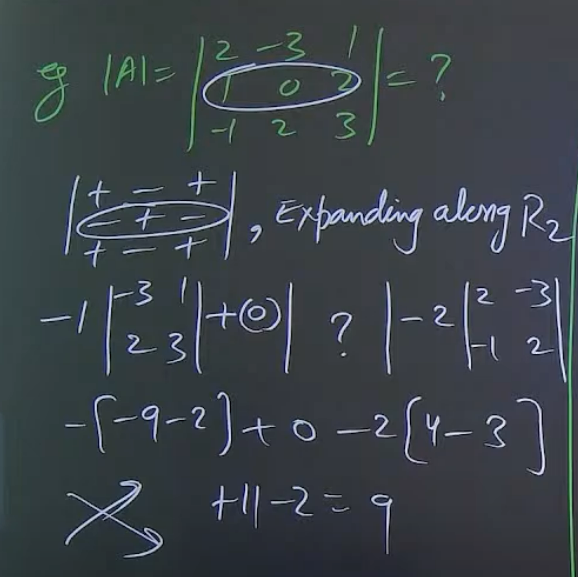 eg |A| = | 2 -3 1 | = ?
| 1 0 2 |
| -1 2 3 |
| + - + |
| - + - | , Expanding along R2
| + - + |
-1 | -3 1 | + (0) | ? | -2 | 2 -3 |
| 2 3 | | -1 2 |
-[-9-2] + 0 - 2[4-3]
+11-2 = 9